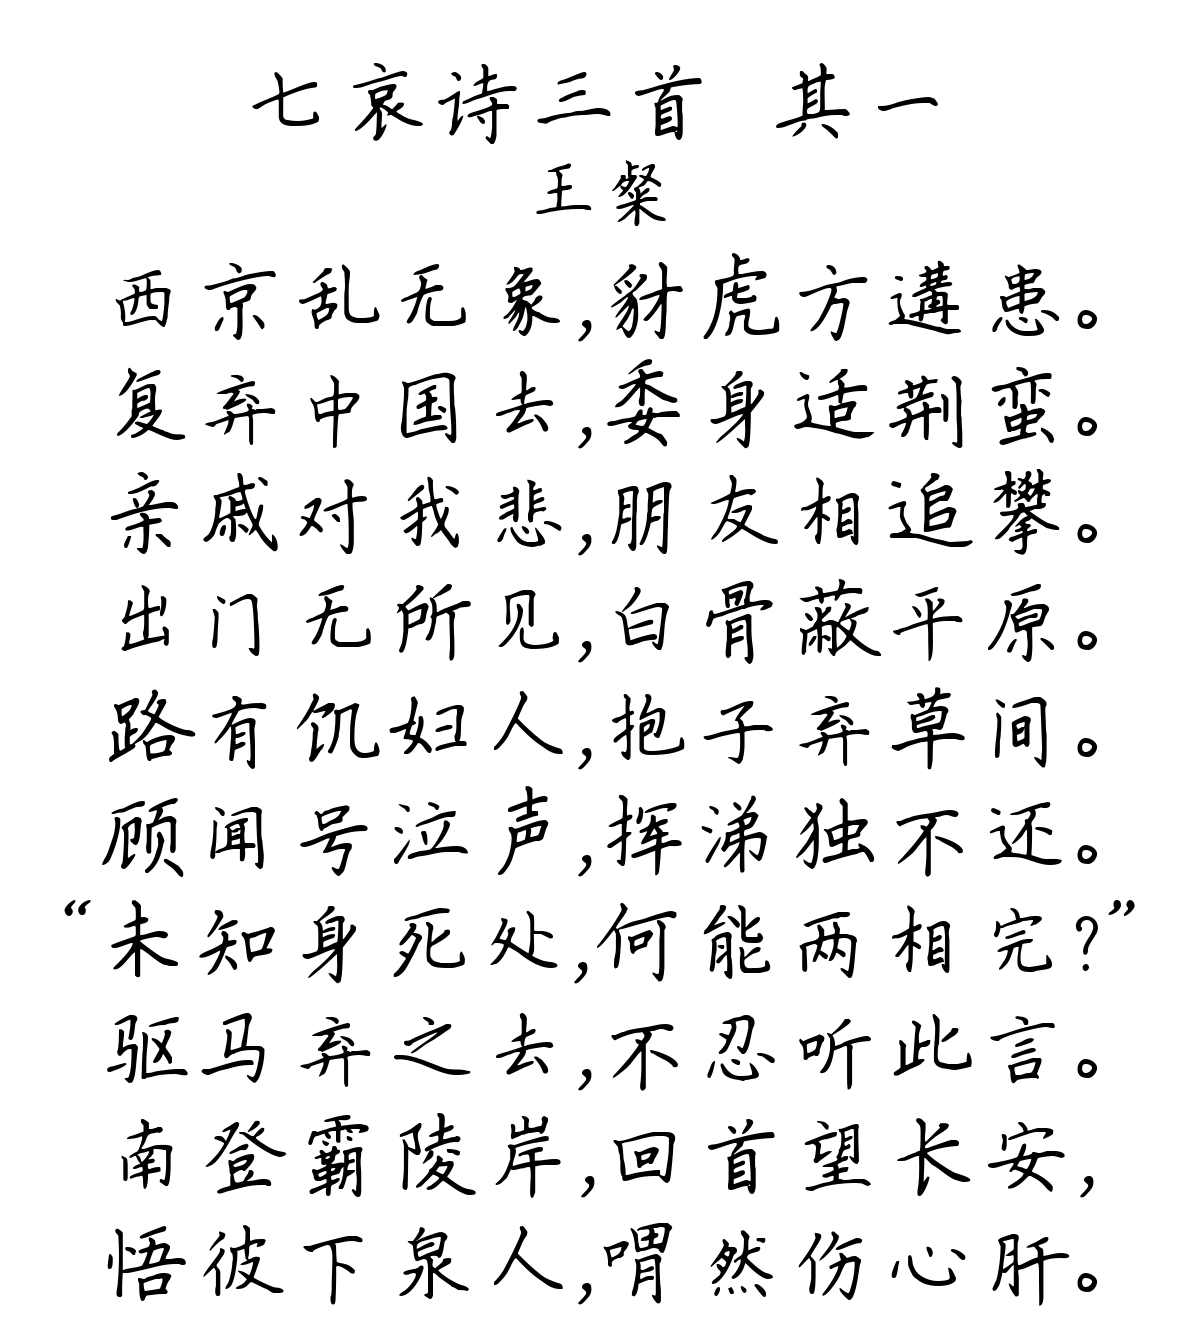 七哀诗三首 其一
王粲
西京乱无象,豺虎方遘患。
复弃中国去,委身适荆蛮。
亲戚对我悲,朋友相追攀。
出门无所见,白骨蔽平原。
路有饥妇人,抱子弃草间。
顾闻号泣声,挥涕独不还。
“未知身死处,何能两相完?”
驱马弃之去,不忍听此言。
南登霸陵岸,回首望长安,
悟彼下泉人,喟然伤心肝。